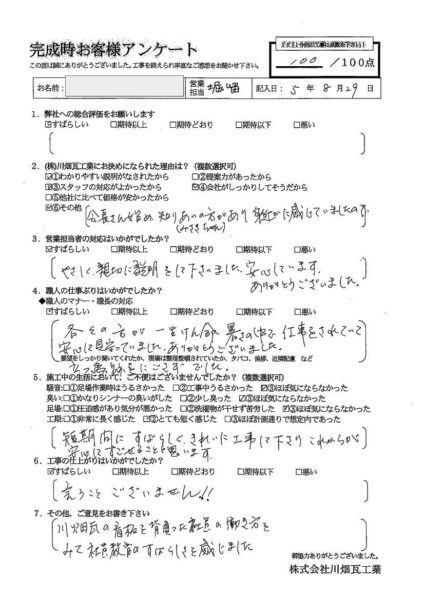 完成時お客様アンケート
この度は誠にありがとうございました。工事を終えられ率直なご感想をお聞かせ下さい。
100 /100点
お名前:
営業担当
記入日: 5年 8月 29日
1. 弊社への総合評価をお願いします
☑すばらしい □期待以上 □期待どおり □期待以下 □悪い
2. (株)川畑瓦工業にお決めになられた理由は？(複数選択可)
☑①わかりやすい説明がなされたから □②提案力があったから
☑③スタッフの対応がよかったから ☑④会社がしっかりしてそうだから
□⑤他社に比べて価格が安かったから
☑⑥その他 会長さん始め 知りあいの方があり 身近に感じていましたので
(みさきちゃん)
3. 営業担当者の対応はいかがでしたか？
☑すばらしい □期待以上 □期待どおり □期待以下 □悪い
やさしく、親切に説明をして下さいました。安心しています。
ありがとうございました。
4. 職人の仕事ぶりはいかがでしたか？
◆職人のマナー・職長の対応
☑すばらしい □期待以上 □期待どおり □期待以下 □悪い
各その方が一生けん命 暑さの中で仕事をされていて
安心に見守っていました。ありがとうございました。
要望をしっかり聞いてくれたか、現場は整理整頓されていたか、タバコ、挨拶、近隣配慮 など
5. 施工中の生活において、ご不便はございませんでしたか？(複数選択可)
騒音:□①足場作業時はうるさかった □②工事中うるさかった ☑③ほぼ気にならなかった
臭い:□①かなりシンナーの臭いがした □②少し臭った ☑③ほぼ気にならなかった
足場:□①圧迫感があり気分が悪かった □②洗濯物が干せず苦労した ☑③ほぼ気にならなかった
工期:□①非常に長く感じた ☑②とても短く感じた □③ほぼ計画通りで想定内であった
短期間にすばらしく、きれいに工事して下さり これからが
安心にすごせることを思います。
6. 工事の仕上がりはいかがでしたか？
☑すばらしい □期待以上 □期待どおり □期待以下 □悪い
言うことございません!!
7. その他、ご意見をお書き下さい
川畑瓦の看板を背負った社員の働き方を
みて社員教育のすばらしさを感じました
御協力ありがとうございました。
株式会社川畑瓦工業